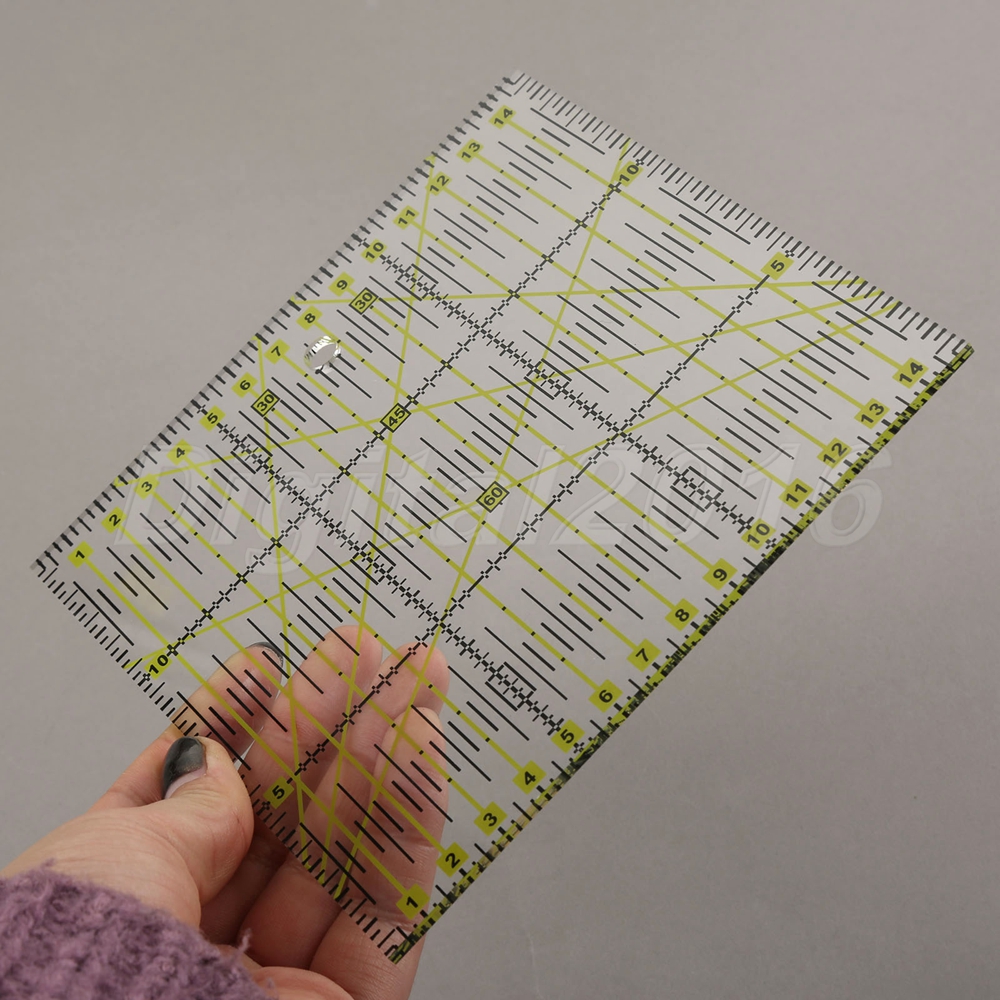 14
13
12
11
10
9
8
7
6
5
4
3
2
1
10
5
30
30
45
60
14
13
12
11
10
9
8
7
6
5
4
3
2
1
10
5
Digital2016